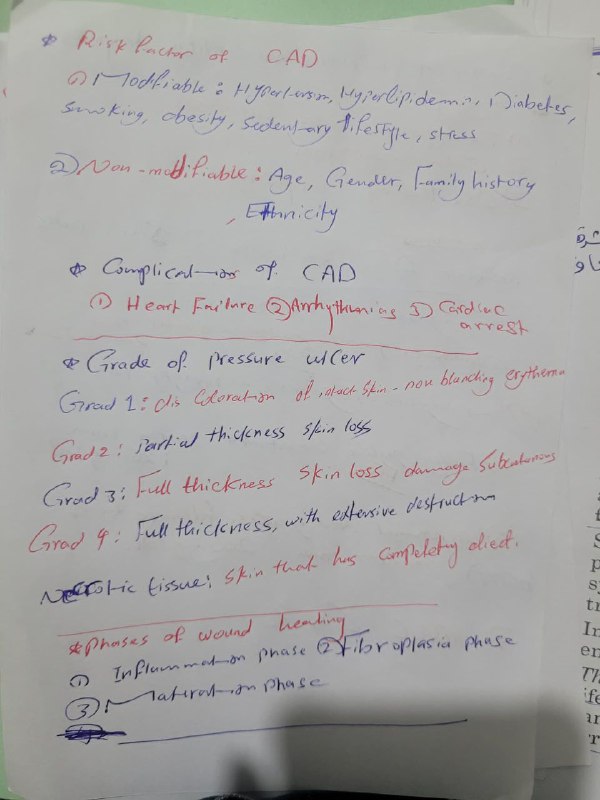 * Risk factor of CAD
① Modfiable: Hypertension, Hyperlipidemia, Diabetes,
smoking, obesity, Sedentary lifestyle, stress
② Non-modifiable: Age, Gender, Family history
, Ethnicity
* Complication of CAD
① Heart Failure ② Arrhythmias 3) Cardiac
arrest
* Grade of pressure ulcer
Grad 1: discoloration of intact skin - non blanching erythema
Grad 2: partial thickness skin loss
Grad 3: Full thickness skin loss, damage subcutanous
Grad 4: Full thickness, with extensive destruction
Necrotic tissue: skin that has completely died.
* phases of wound healing
① Inflammation phase ② Fibroplasia phase
③ Maturation phase